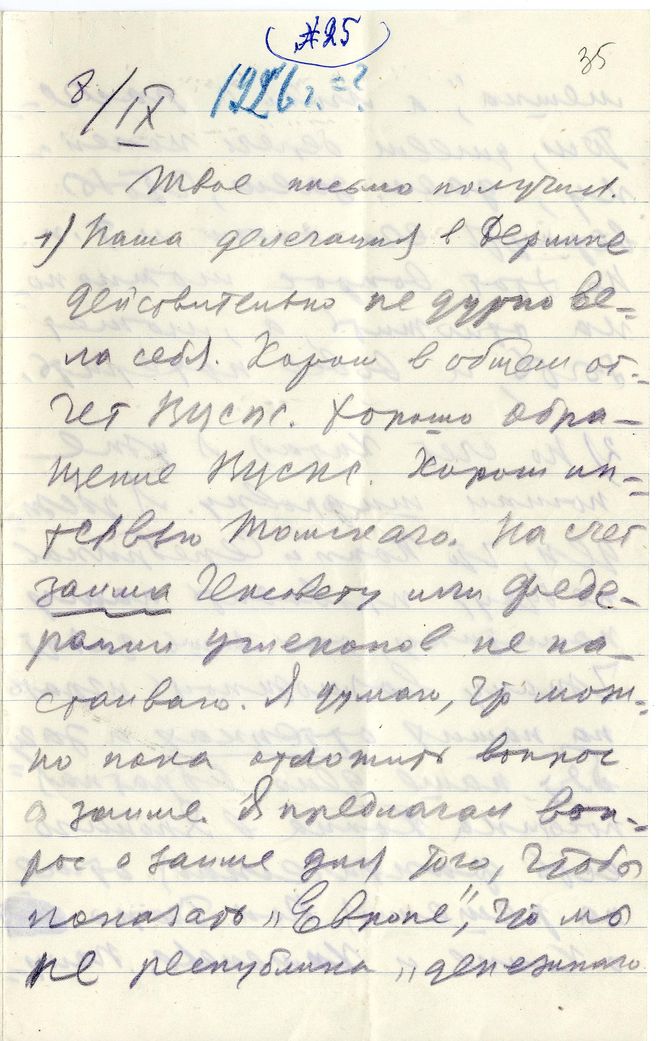 #25
35
8/IX 1926 г. = ?
Твое письмо получил.
1) Наша делегация в Берлине
действительно не дурно ве-
ла себя. Хорош в общем от-
чет ВЦСПС. Хорошо обра-
щение ВЦСПС. Хорош ин-
тервью Томскаго. На счет
займа Генсовету или феде-
рации углекопов не на-
стаиваю. Я думаю, что мож-
но пока отложить вопрос
о займе. Я предлагал воп-
рос о займе для того, чтобы
показать „Европе", что мы
не республика „денежнаго